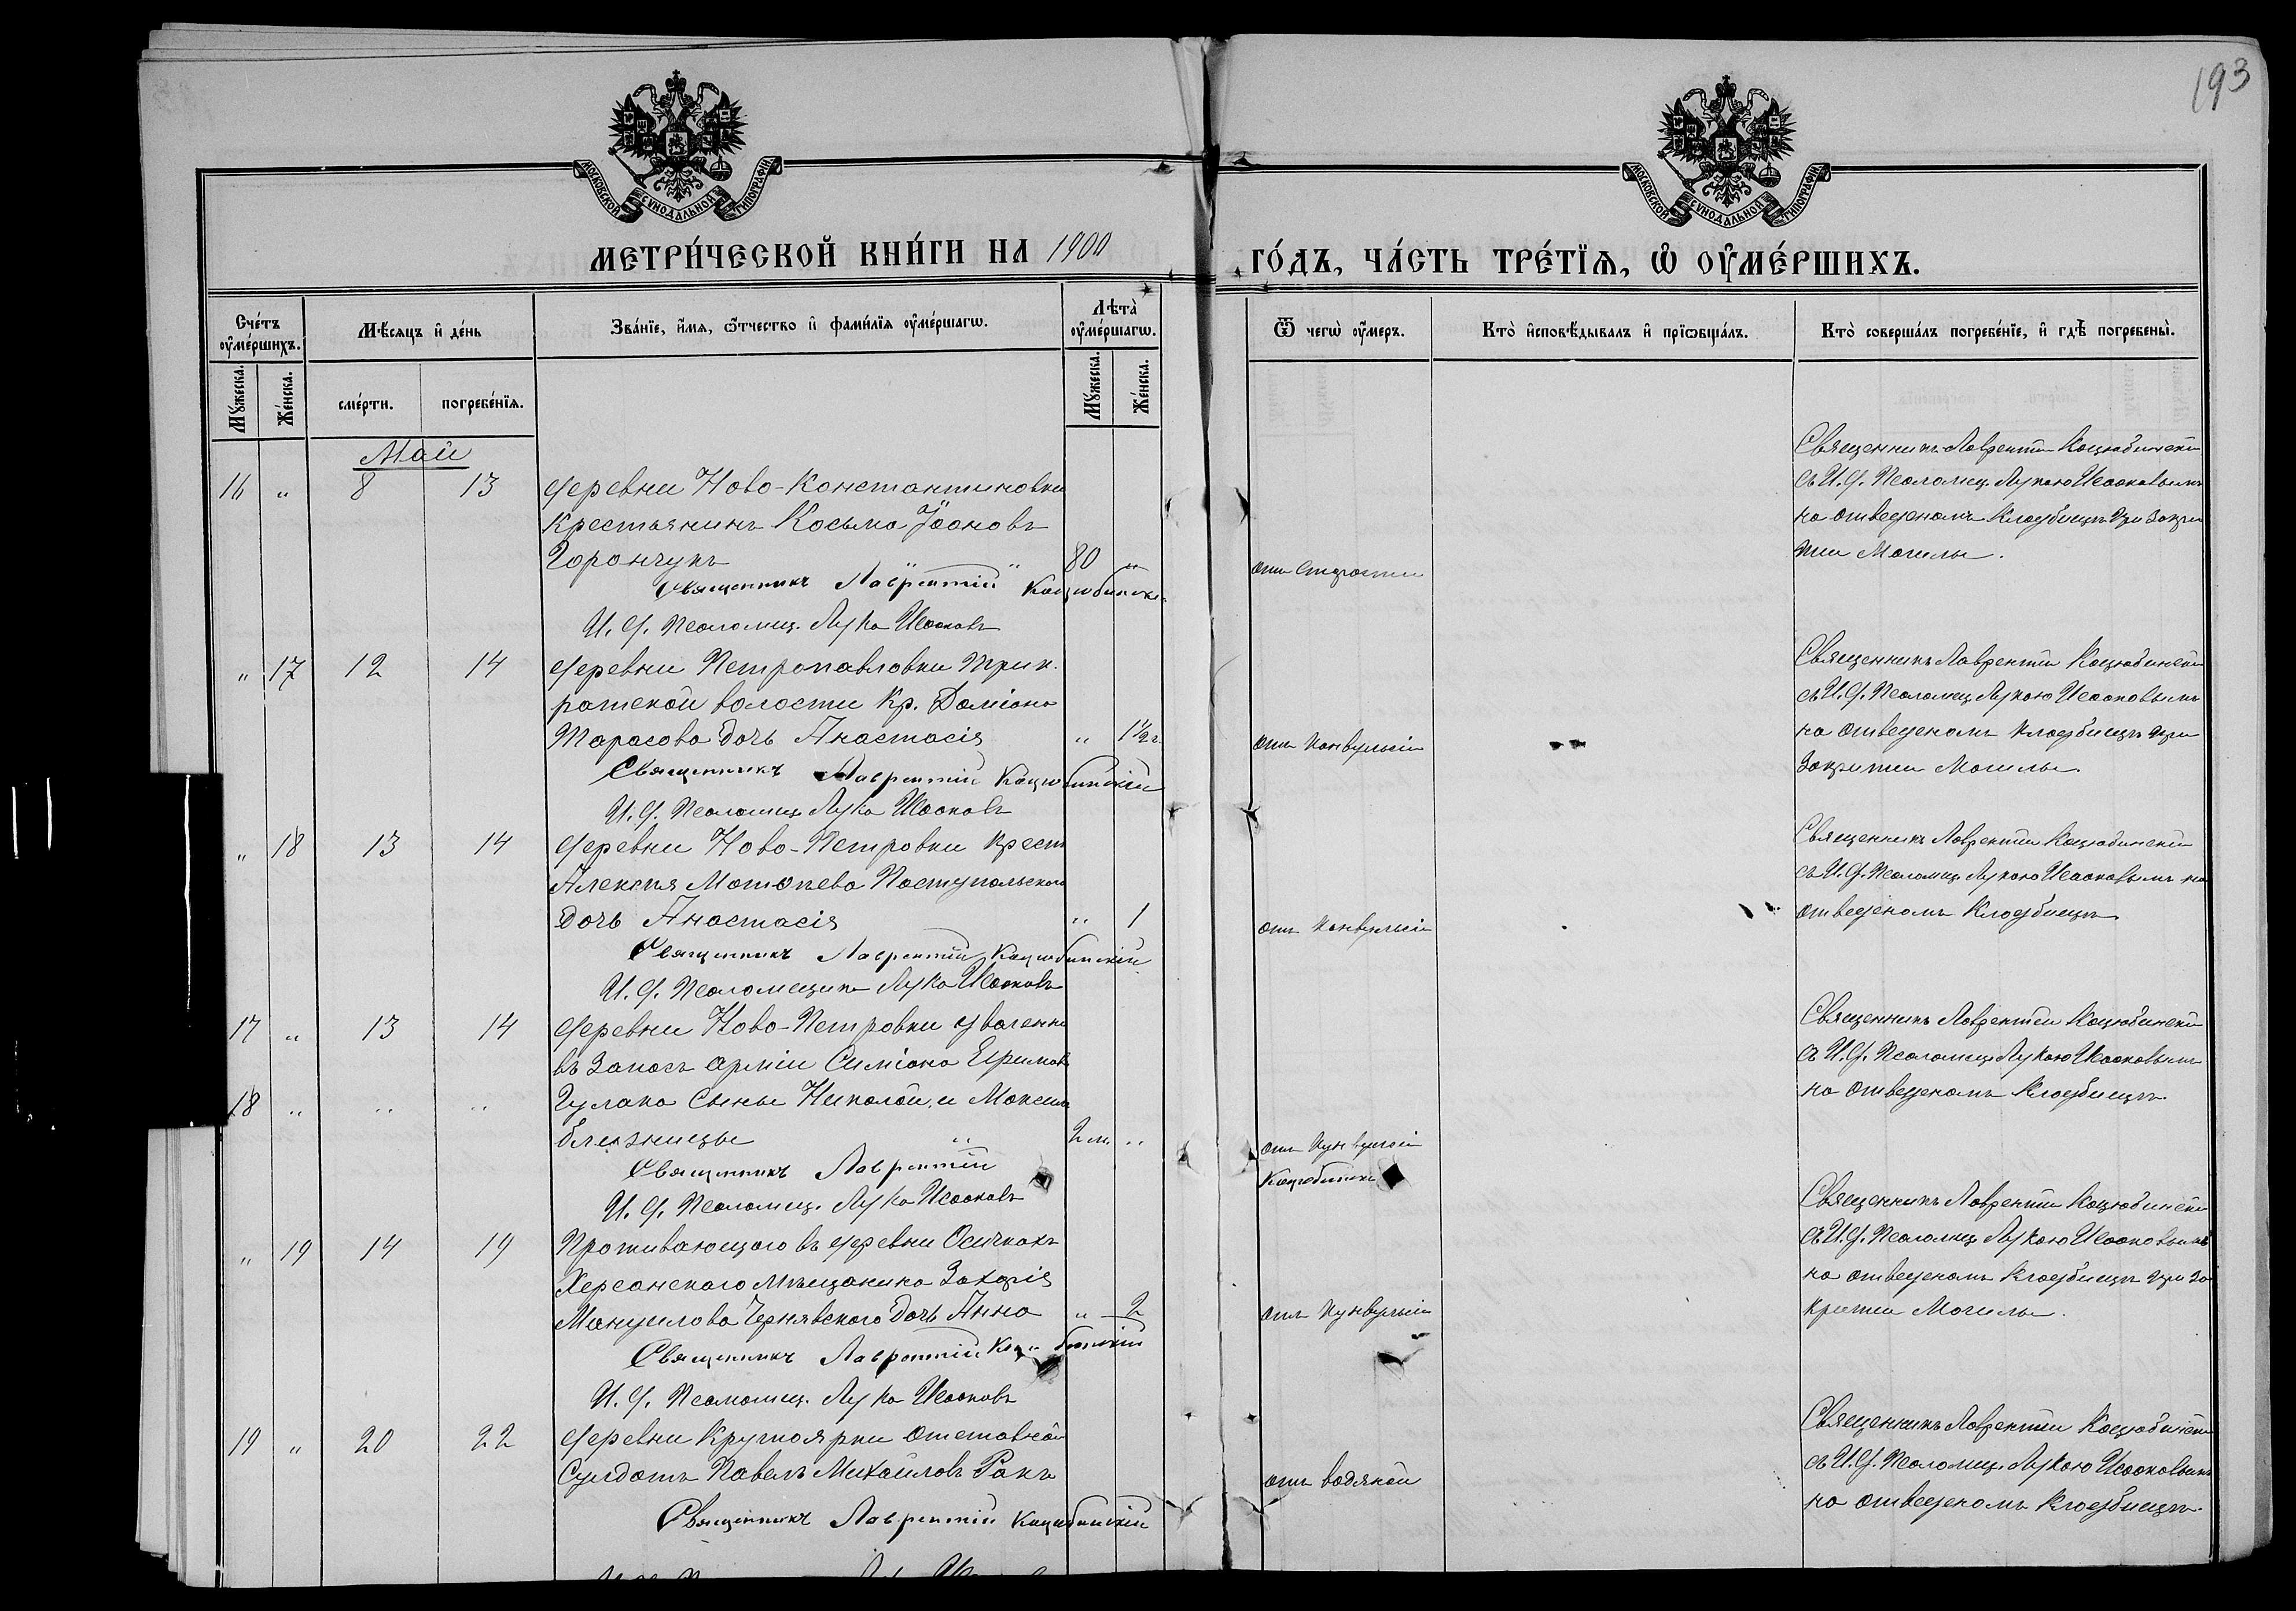 193
МОСКОВСКОЙ СѴНОДАЛЬНОЙ ТИПОГРАФІИ
МОСКОВСКОЙ СѴНОДАЛЬНОЙ ТИПОГРАФІИ
МЕТРИ́ЧЕСКОЙ КНИ́ГИ НА 1900 ГО́ДЪ, ЧА́СТЬ ТРЕ́ТЇѦ, Ѡ ОУ҆МЕ́РШИХЪ.
Сче́тъ оу҆ме́ршихъ.
Мꙋ́жеска.
Же́нска.
Мѣ́сѧцъ и҆ де́нь
сме́рти.
погребе́нїѧ.
Зва́нїе, и҆́мѧ, ѻ҆́тчество и҆ фами́лїѧ оу҆ме́ршагѡ.
Лѣта̀ оу҆ме́ршагѡ.
Мꙋ́жеска.
Же́нска.
Ѿ чегѡ̀ оу҆́меръ.
Кто̀ и҆сповѣ́дывалъ и҆ прїѡбща́лъ.
Кто̀ соверша́лъ погребе́нїе, и҆ гдѣ̀ погребены̀.
Май
16 „ 8 13 деревни Ново-Константиновки
Крестьянинъ Косьма Іоановъ
Горончукъ „ „ 80 „
Священникъ Лаврентій Коцюбинскі
И. д. Псаломщ. Лука Исааковъ
отъ старости
Священникъ Лаврентій Коцюбински
съ И. д. Псаломщ. Лукою Исааковымъ
на отведеномъ кладбищѣ при закры
тіи Могилы.
„ 17 12 14 деревни Петропавловки Трик.
ратской волости Кр. Даміана
Тарасова дочь Анастасія „ 1½ г.
Священникъ Лаврентій Коцюбинскій
И. д. Псаломщ. Лука Исааковъ
отъ конвульсіи
Священникъ Лаврентій Коцюбински
съ И. д. Псаломщ. Лукою Исааковымъ
на отведеномъ кладбищѣ при
закрытіи Могилы.
„ 18 13 14 деревни Ново-Петровки крест
Алексѣя Матѳѣева Поступальскаго
дочь Анастасія „ 1
Священникъ Лаврентій Коцюбинскій
И. д. Псаломщикъ Лука Исааковъ
отъ конвульсіи
Священникъ Лаврентій Коцюбинскій
съ И. д. Псаломщ. Лукою Исааковымъ на
отведеномъ кладбищѣ
17 „ 13 14 деревни Ново-Петровки уволенн
въ запасъ арміи Симіона Ефимов
18 „ „ „ Гулака сыны Николай и Максим
близнецы „ 2 м. „
Священникъ Лаврентій Коцюбински
И. д. Псаломщ. Лука Исааковъ
отъ конвульсіи
Священникъ Лаврентій Коцюбински
съ И. д. Псаломщ. Лукою Исааковымъ
на отведеномъ кладбищѣ.
„ 19 14 19 Проживающаго въ деревни Осичкахъ
Херсонскаго мѣщанина Захарія
Мануилова Чернявского дочь Анна „ 2
Священникъ Лаврентій Коцюбинскій
И. д. Псаломщ. Лука Исааковъ
отъ конвульсіи
Священникъ Лаврентій Коцюбински
съ И. д. Псаломщ. Лукою Исааковымъ
на отведеномъ кладбищѣ при за
крытіи Могилы.
19 „ 20 22 деревни Круглоярки отставной
Солдатъ Павелъ Михайловъ Ракъ
Священникъ Лаврентій Коцюбинскій
отъ водяной
Священникъ Лаврентій Коцюбински
съ И. д. Псаломщ. Лукою Исааковымъ
на отведеномъ кладбищѣ.